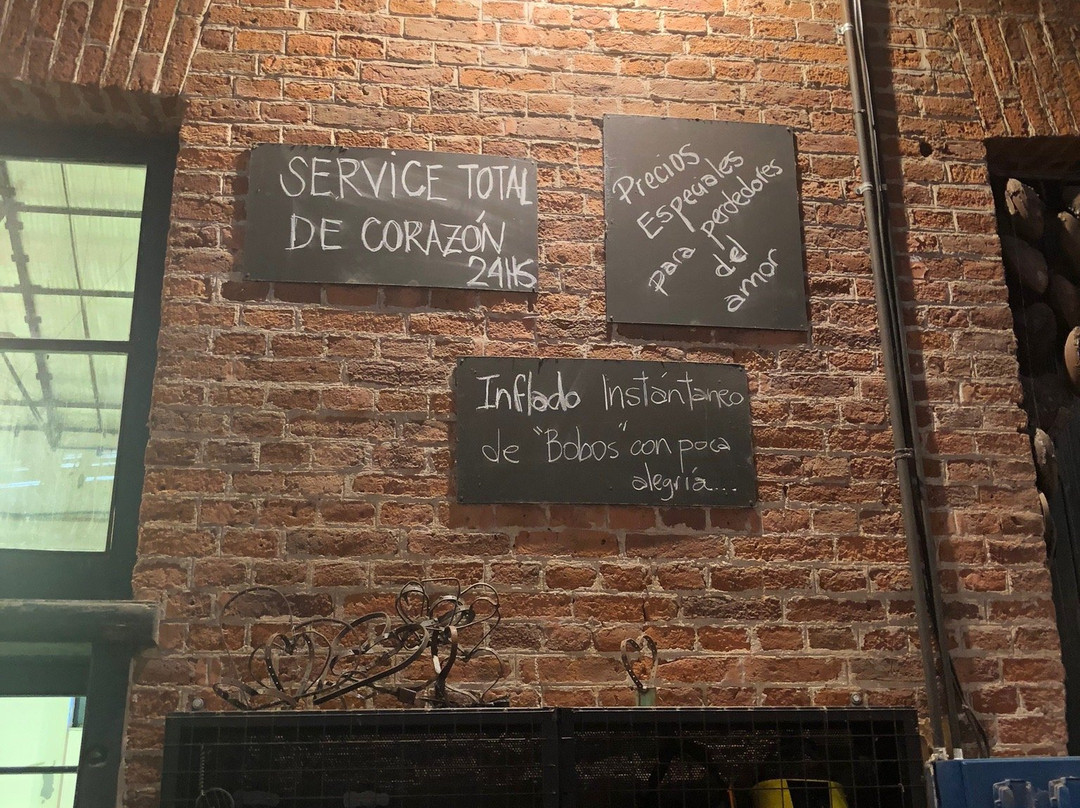 SERVICE TOTAL
DE CORAZÓN
24HS
Precios
Especiales
para perdedores
del
amor
Inflado Instantaneo
de "Bobos" con poca
alegría...